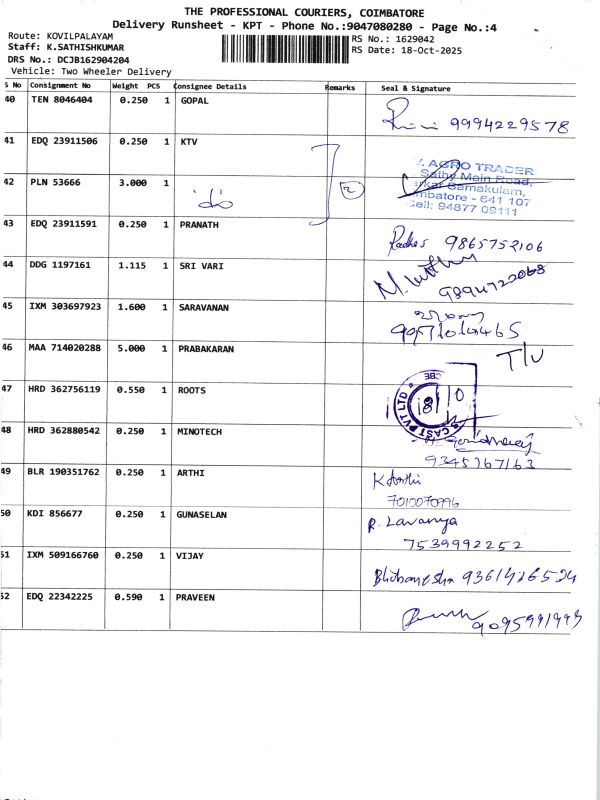 THE PROFESSIONAL COURIERS, COIMBATORE
Delivery Runsheet - KPT - Phone No.:9047080280 - Page No.:4
Route: KOVILPALAYAM
RS No.: 1629042
Staff: K.SATHISHKUMAR
RS Date: 18-Oct-2025
DRS No.: DCJB162904204
Vehicle: Two Wheeler Delivery
S No Consignment No Weight PCS Consignee Details Remarks Seal & Signature
40 TEN 8046404 0.250 1 GOPAL
9994229578
41 EDQ 23911506 0.250 1 KTV
AGRO TRADER
Sathy Main Road,
Samakulam,
641 107
Cell: 94877 09111
42 PLN 53666 3.000 1
do
2
43 EDQ 23911591 0.250 1 PRANATH
9865752106
44 DDG 1197161 1.115 1 SRI VARI
45 IXM 303697923 1.600 1 SARAVANAN
46 MAA 714020288 5.000 1 PRABAKARAN
47 HRD 362756119 0.550 1 ROOTS
CBE
CAST PVT LTD
18/10
48 HRD 362880542 0.250 1 MINOTECH
9345767163
49 BLR 190351762 0.250 1 ARTHI
K Arthi
7010070996
50 KDI 856677 0.250 1 GUNASELAN
R. Lavanya
7539992252
51 IXM 509166760 0.250 1 VIJAY
52 EDQ 22342225 0.590 1 PRAVEEN